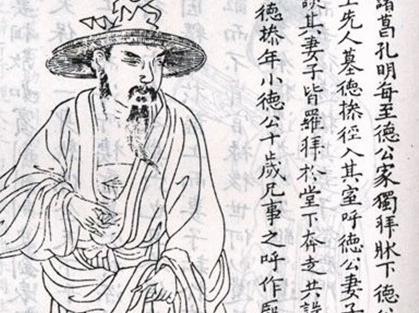 諸葛孔明每至德公家獨拜牀下德公
上先人墓德操徑入其室呼德公妻子
談其妻子皆羅拜於堂下奔走共設
德操年小德公十歲兄事之呼作